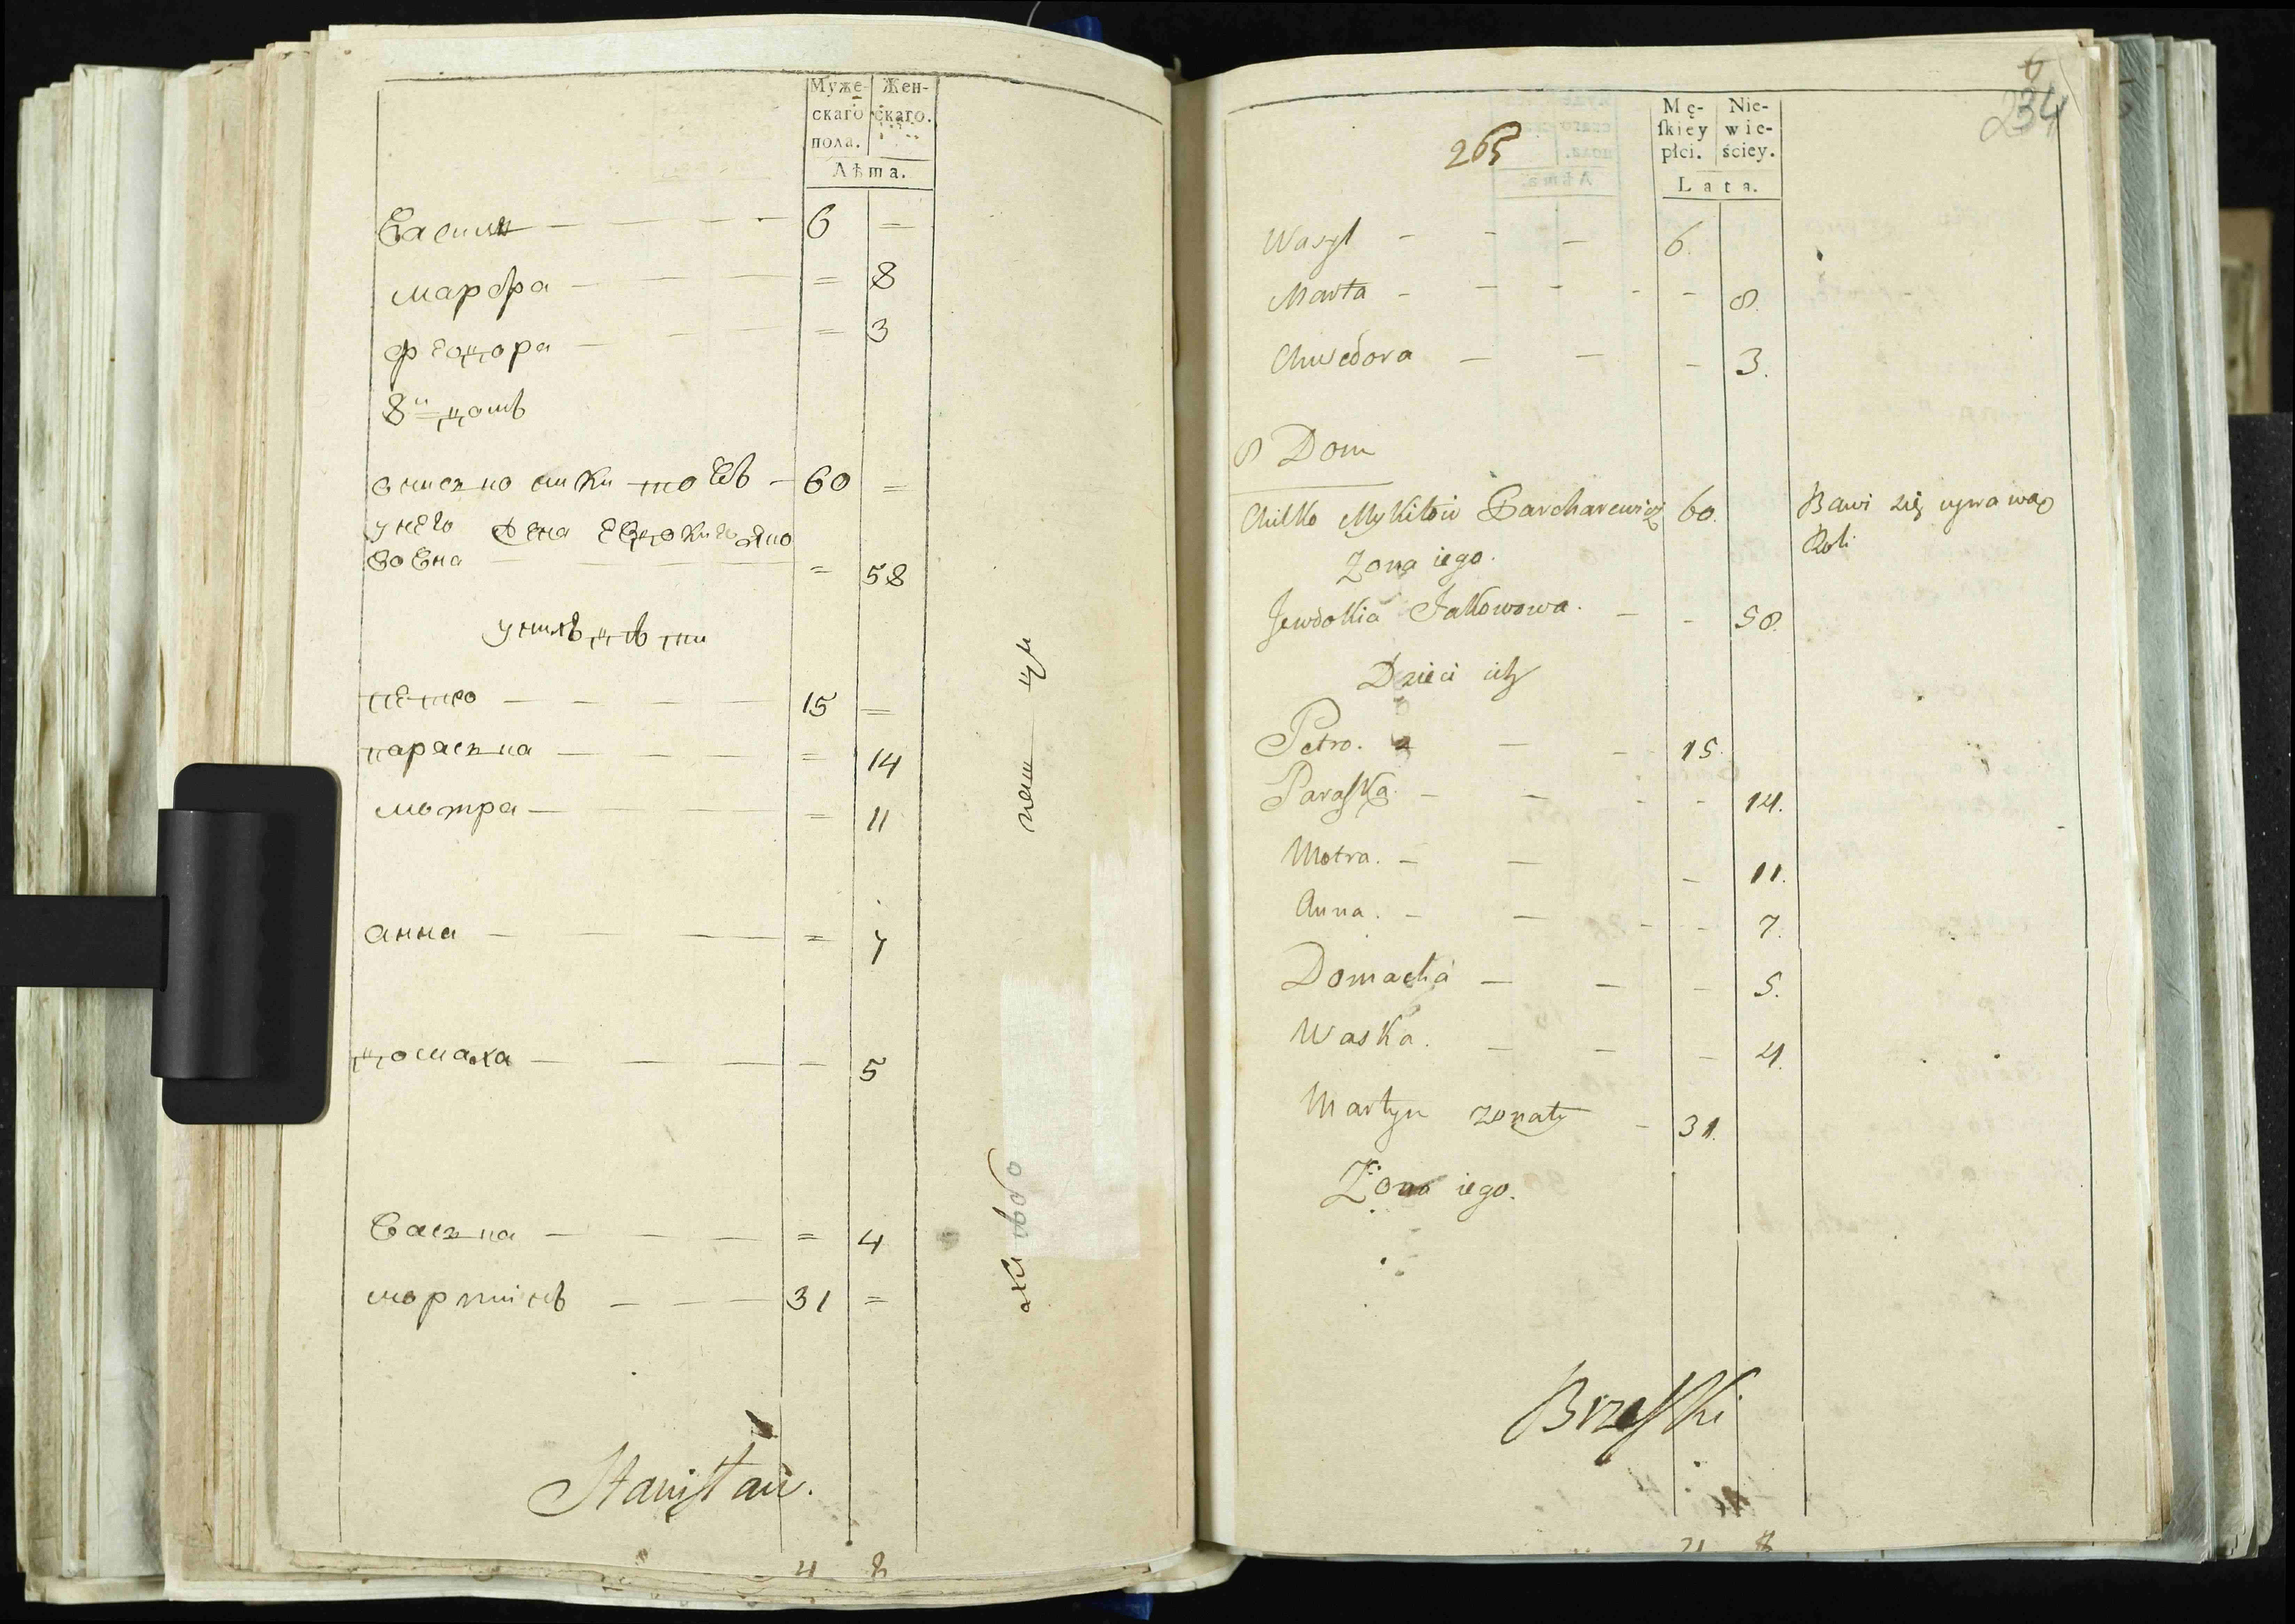 Муже- Жен-
скаго скаго.
пола.
Лѣта.
Василь — — — — 6 =
марфа — — — = 8
феодора — — — = 3
8й домъ
60 =
у него жена Евдокия Яко
вовна — — — = 58
у нихъ дѣти
петро — — — — 15 =
параска — — — — = 14
мотра — — — — = 11
анна — — — — = 7
домаха — — — — 5
Васка — — — = 4
мартинъ — — — 31 =
Stanisław.
4 8
6
234
265
Mę- Nie-
ſkiey wie-
płci. ściey.
Lata.
Wasyl - - - 6.
Marta - - - - - 8.
Chwedora - - - 3.
8 Dom
Chilko Mykitów Parcharewicz 60. Bawi się uprawą
Roli
Zona iego.
Jewdokia Jakowowa. - - 58.
Dzieci ich
Petro. - - 15.
Paraſka. - - - - 14.
Motra. - - - 11.
Anna. - - - - 7.
Domacha - - - 5.
Waska. - - - 4.
Martyn zonaty - 31.
Zona iego.
Brzeſki